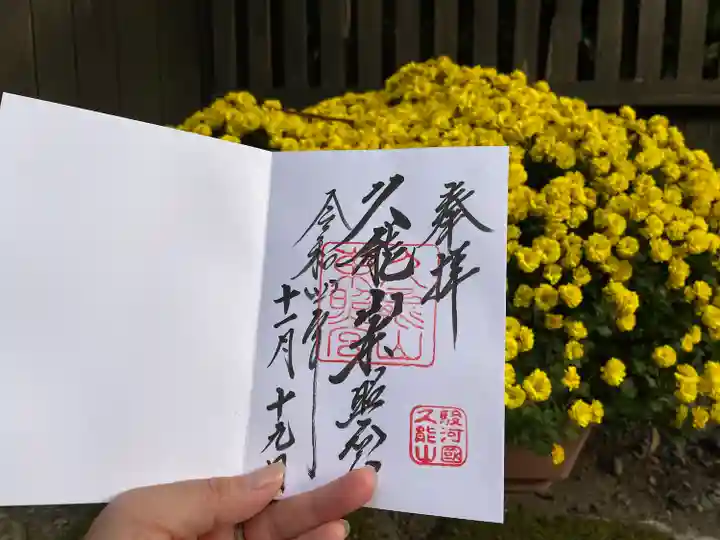 奉拝
駿河國
久能山
久能山東照宮
令和四年
十一月十九日